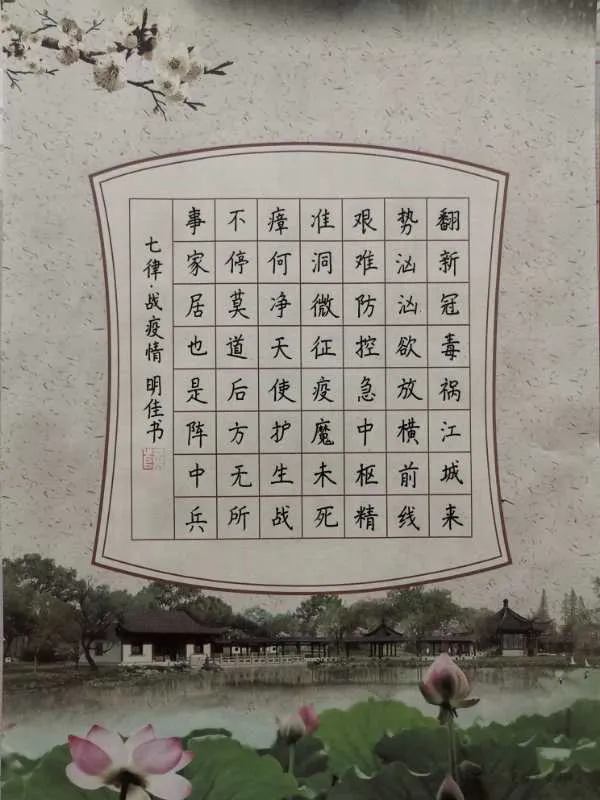 翻新冠毒祸江城来
势汹汹欲放横前线
艰难防控急中枢精
准洞微征疫魔未死
瘴何净天使护生战
不停莫道后方无所
事家居也是阵中兵
七律·战疫情 明佳书